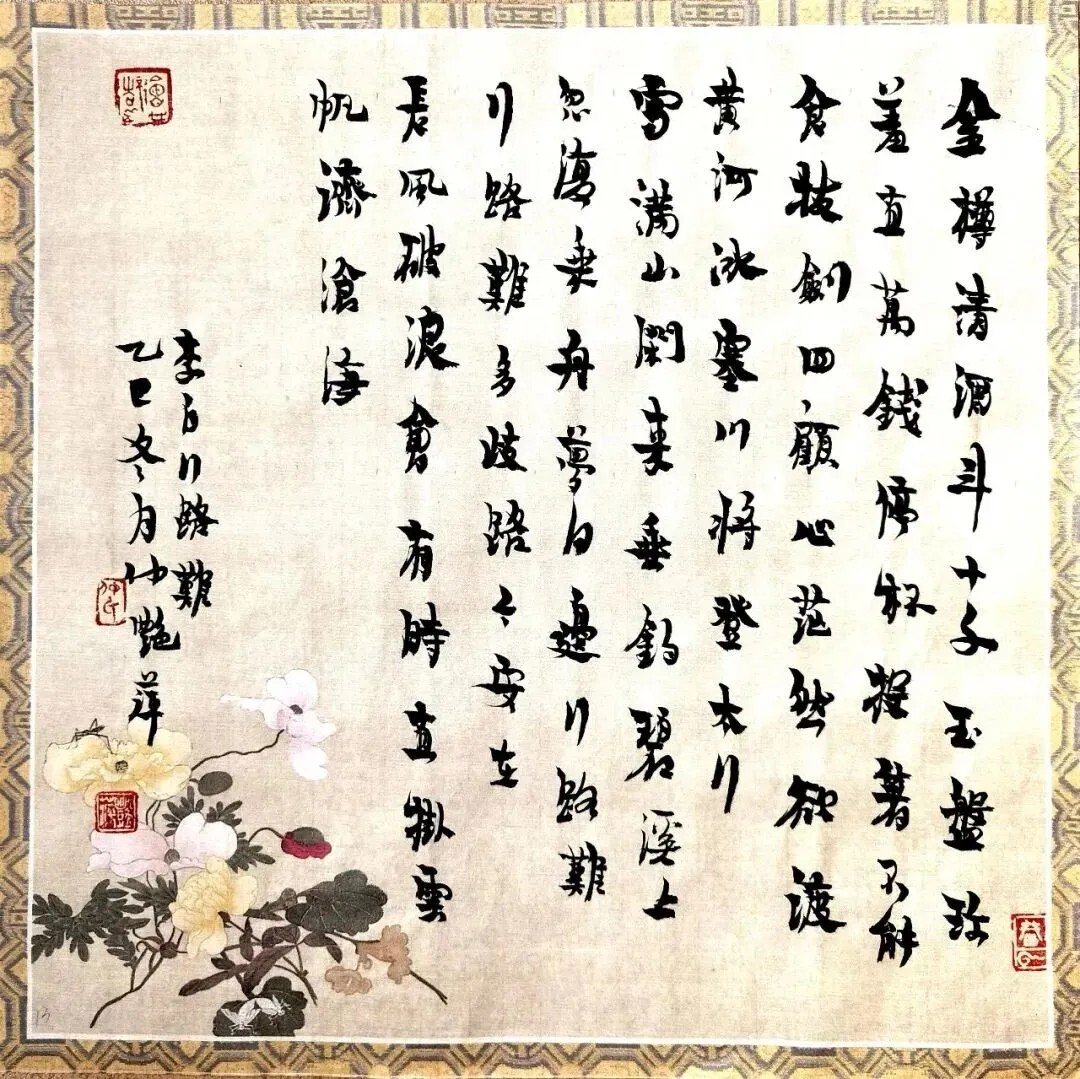 金樽清酒斗十千玉盤珍
羞直萬錢停杯投箸不能
食拔劍四顧心茫然欲渡
黄河冰塞川將登太行
雪滿山閑來垂釣碧溪上
忽復乘舟夢日邊行路難
行路難多歧路今安在
長風破浪會有時直掛雲
帆濟滄海
李白行路難
乙巳冬月仲艷萍
仲氏